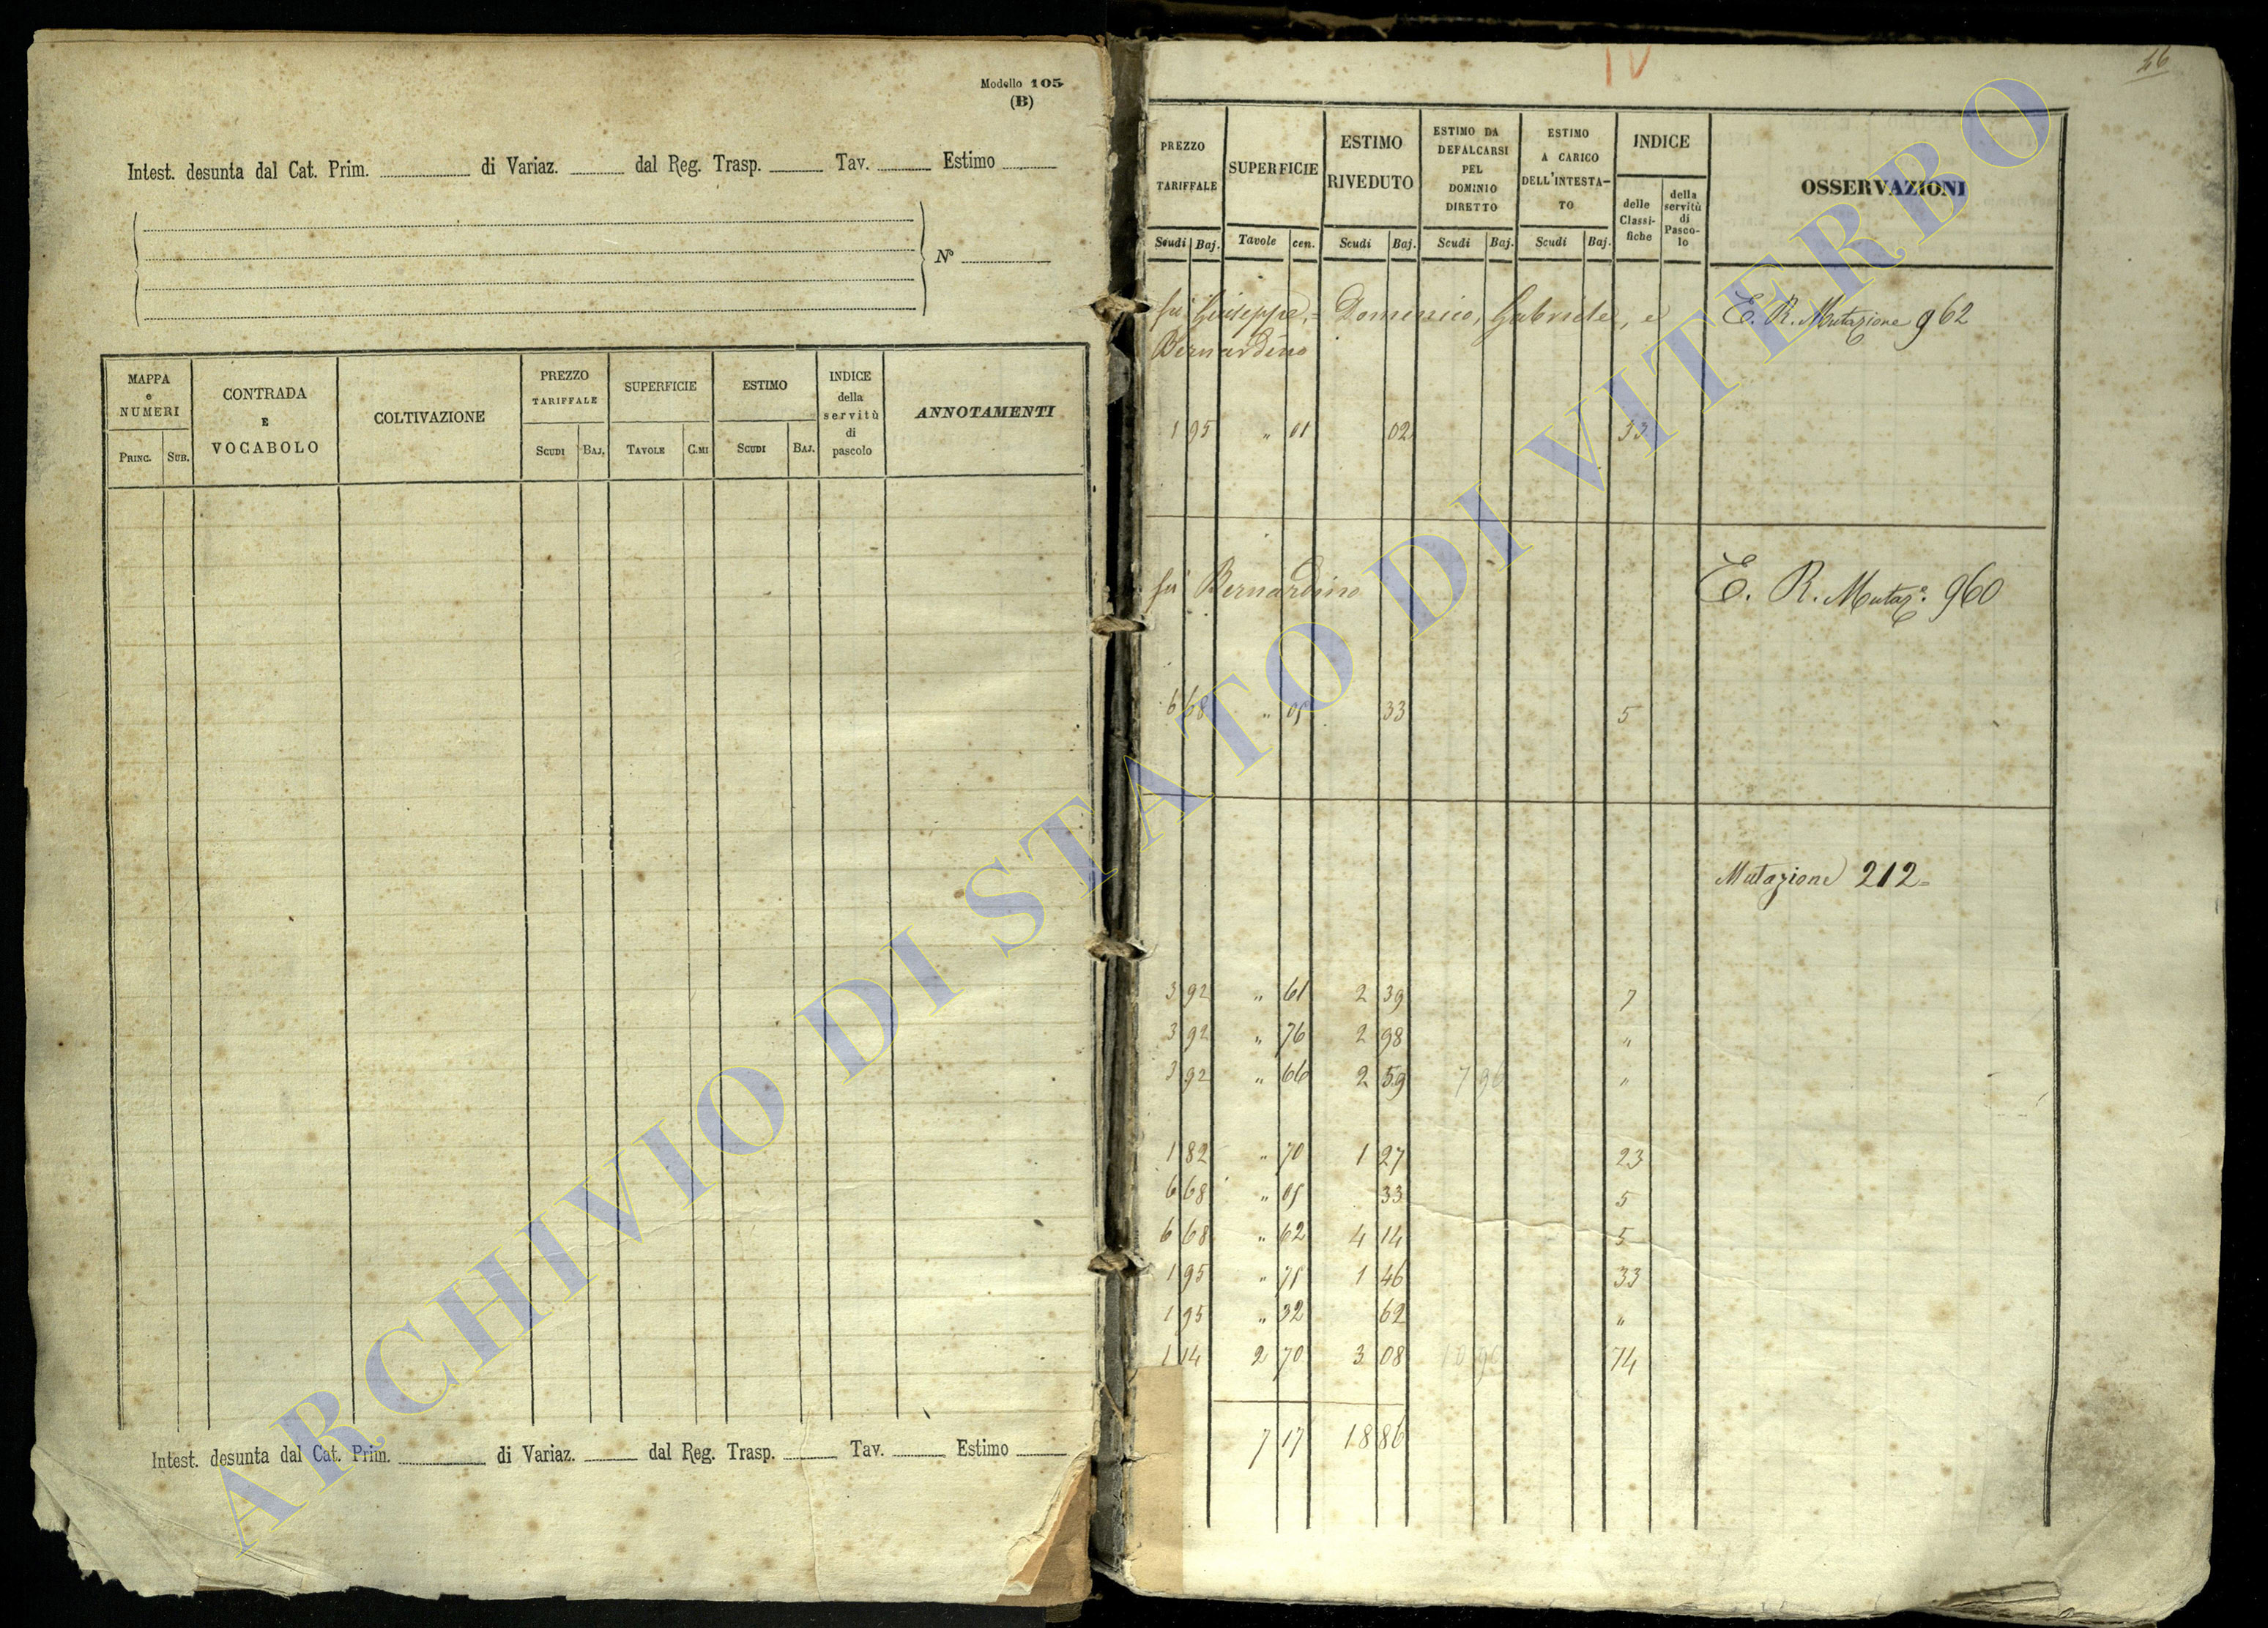 Modello 105
(B)
Intest. desunta dal Cat. Prim. di Variaz. dal Reg. Trasp. Tav. Estimo
N°
MAPPA e NUMERI
PRINC. SUB.
CONTRADA E VOCABOLO
COLTIVAZIONE
PREZZO TARIFFALE
SCUDI BAJ.
SUPERFICIE
TAVOLE C.MI
ESTIMO
SCUDI BAJ.
INDICE della servitù di pascolo
ANNOTAMENTI
Intest. desunta dal Cat. Prim. di Variaz. dal Reg. Trasp. Tav. Estimo
IV
PREZZO TARIFFALE
Scudi Baj.
SUPERFICIE
Tavole cen.
ESTIMO RIVEDUTO
Scudi Baj.
ESTIMO DA DEFALCARSI PEL DOMINIO DIRETTO
Scudi Baj.
ESTIMO A CARICO DELL'INTESTA-TO
Scudi Baj.
INDICE
delle Classi-fiche
della servitù di Pasco-lo
OSSERVAZIONI
fu Giuseppe, = Domenico, Gabriele, e E. R. Mutazione 962
Bernardino
1 95 " 01 02 33
fu Bernardino E. R. Mutaz.e 960
6 68 " 05 33 5
Mutazione 212=
3 92 " 61 2 39 7
3 92 " 76 2 98 "
3 92 " 66 2 59 7 96 "
1 82 " 70 1 27 23
6 68 " 05 33 5
6 68 " 62 4 14 5
1 95 " 75 1 46 33
1 95 " 32 62 "
1 14 2 70 3 08 10 90 74
7 17 18 86
ARCHIVIO DI STATO DI VITERBO